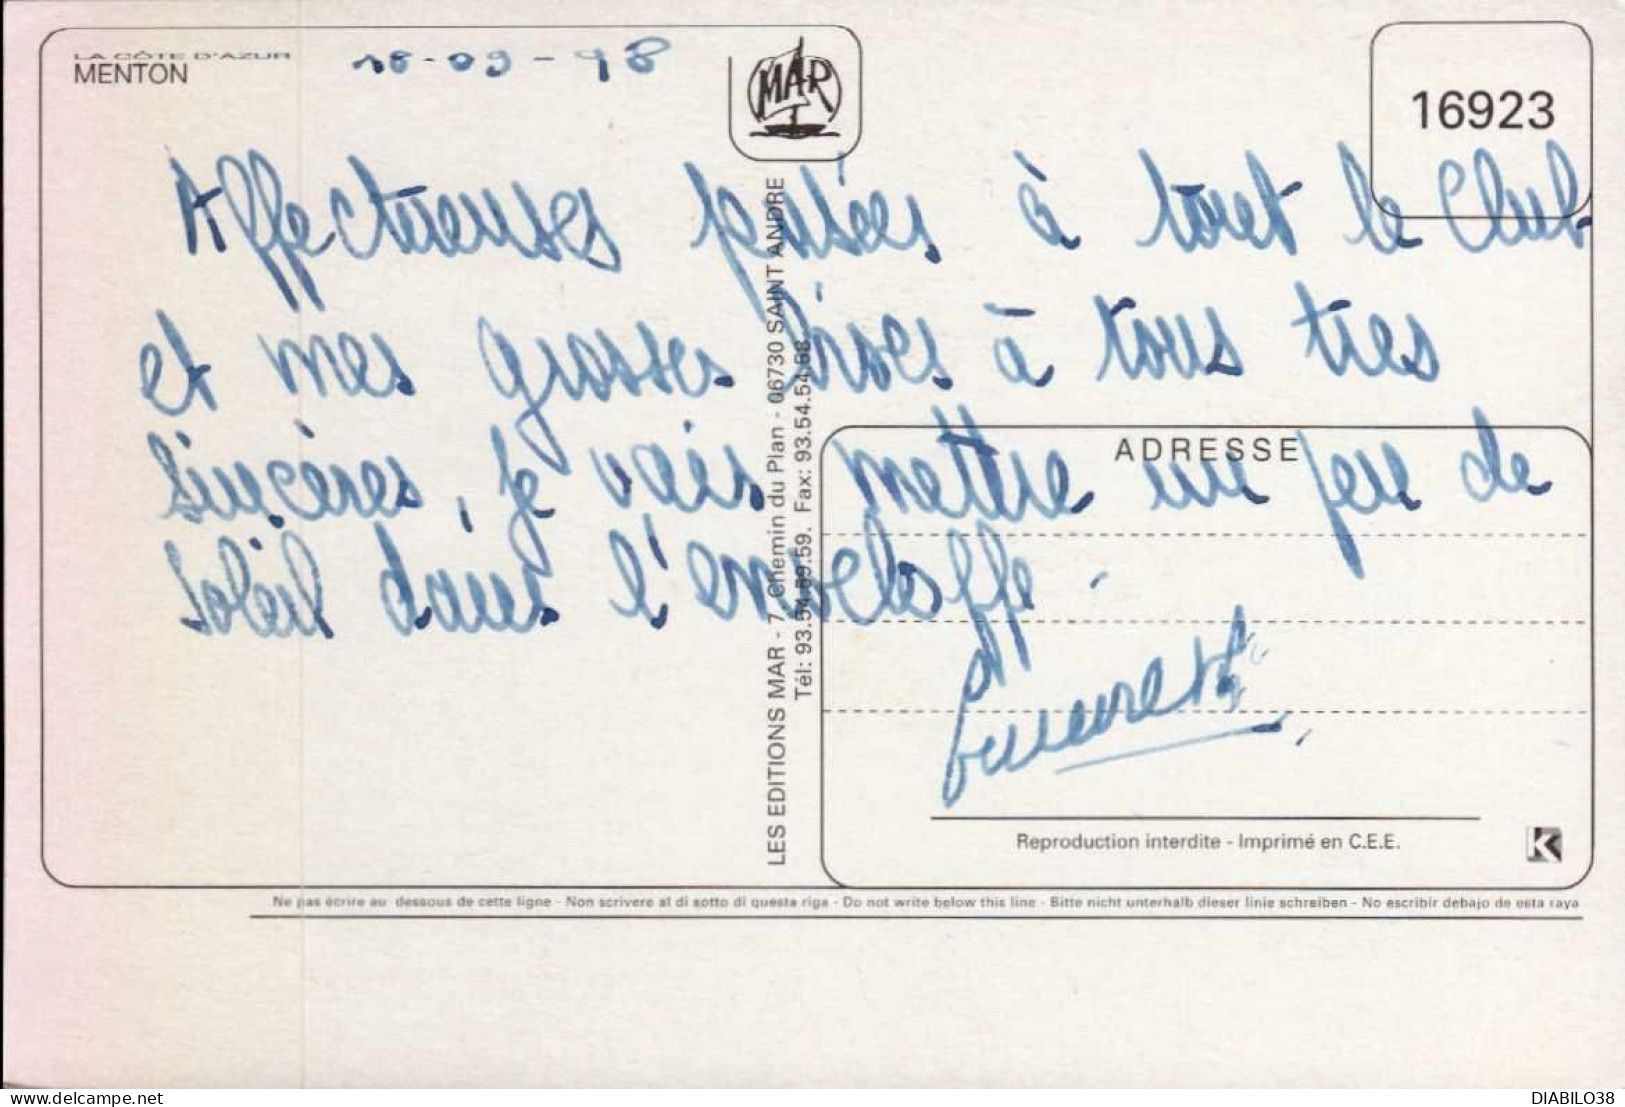 LA CÔTE D'AZUR
MENTON
18-09-98
MAR
16923
Affectueuses pensées à tout le Club
et mes grosses bises à tous très
sincères, je vais mettre un peu de
soleil dans l'enveloppe.
LES EDITIONS MAR - 7, Chemin du Plan - 06730 SAINT ANDRE
Tél: 93.54.59.59. Fax: 93.54.54.68.
ADRESSE
Reproduction interdite - Imprimé en C.E.E.
K
Ne pas écrire au dessous de cette ligne - Non scrivere al di sotto di questa riga - Do not write below this line - Bitte nicht unterhalb dieser linie schreiben - No escribir debajo de esta raya
DIABILO38